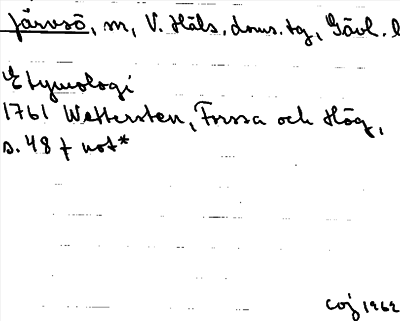 Järvsö, m, V. Häls. doms. tg, Gävl. l
Etymologi
1761 Wettersten, Forssa och Hög,
s. 48 f not*
COJ 1962